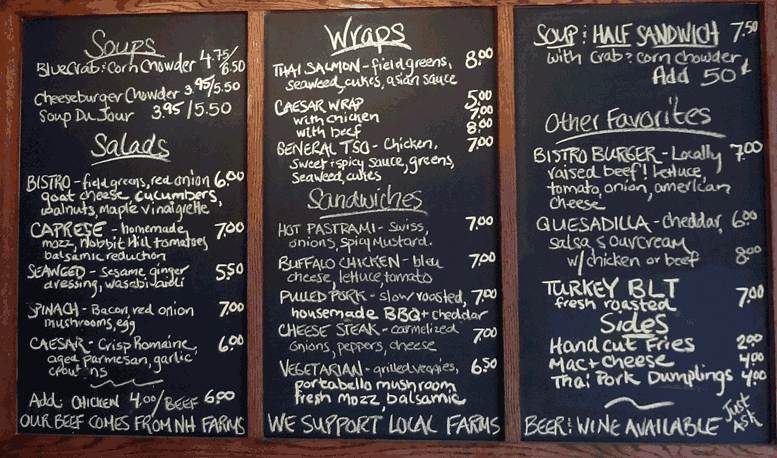 Soups
Blue Crab & Corn Chowder 4.75/6.50
Cheeseburger Chowder 3.95/5.50
Soup Du Jour 3.95/5.50
Salads
BISTRO - field greens, red onion 6.00
goat cheese, cucumbers,
walnuts, maple vinaigrette
CAPRESE - homemade 7.00
mozz, Hobbit Hill tomatoes
balsamic reduction
SEAWEED - sesame, ginger 5.50
dressing, wasabi
SPINACH - Bacon, red onion 7.00
mushrooms, egg
CAESAR - Crisp Romaine, 6.00
aged parmesan, garlic
croutons
Add: CHICKEN 4.00/BEEF 6.00
OUR BEEF COMES FROM NH FARMS
Wraps
THAI SALMON - field greens, 8.00
seaweed, cukes, asian sauce
CAESAR WRAP 5.00
with chicken 7.00
with beef 8.00
GENERAL TSO - Chicken, 7.00
sweet & spicy sauce, greens,
seaweed, cukes
Sandwiches
HOT PASTRAMI - Swiss, 7.00
onions, spicy mustard.
BUFFALO CHICKEN - bleu 7.00
cheese, lettuce, tomato
PULLED PORK - slow roasted, 7.00
housemade BBQ + cheddar
CHEESE STEAK - carmelized 7.00
onions, peppers, cheese
VEGETARIAN - grilled veggies, 6.50
portabello mushroom
fresh mozz, balsamic
WE SUPPORT LOCAL FARMS
SOUP & HALF SANDWICH 7.50
with Crab & corn chowder
Add 50¢
Other Favorites
BISTRO BURGER - Locally 7.00
raised beef! lettuce,
tomato, onion, american
cheese
QUESADILLA - cheddar, 6.00
salsa, sourcream
w/chicken or beef 8.00
TURKEY BLT 7.00
fresh roasted
Sides
Hand cut Fries 2.00
Mac + cheese 4.00
Thai Pork Dumplings 4.00
BEER & WINE AVAILABLE Just Ask